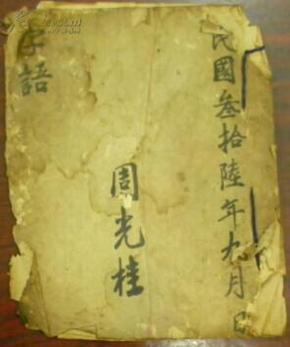 民國叁拾陸年九月日
周光桂
字語